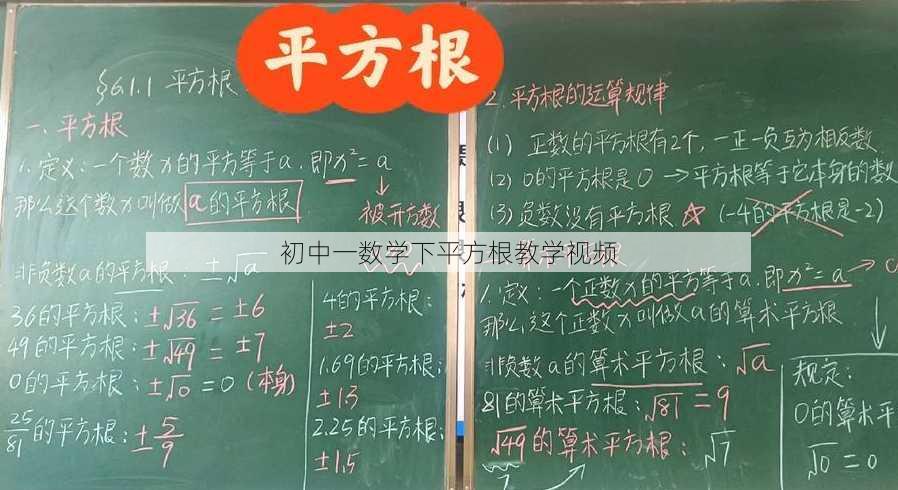 平方根
§6.1.1 平方根
一、平方根
1.定义：一个数x的平方等于a，即x²=a
那么这个数x叫做a的平方根
被开方数
初中一数学下平方根教学视频
非负数a的平方根：±√a
36的平方根：±√36=±6
49的平方根：±√49=±7
0的平方根：±√0=0(本身)
25/81的平方根：±5/9
4的平方根：
±2
1.69的平方根：
±1.3
2.25的平方根：
±1.5
2.平方根的运算规律
(1) 正数的平方根有2个，一正一负互为相反数
(2) 0的平方根是0→平方根等于它本身的数
(3) 负数没有平方根☆(-4的平方根是-2)
1.定义：一个正数x的平方等于a，即x²=a→
那么，这个正数x叫做a的算术平方根
非负数a的算术平方根：√a
81的算术平方根：√81=9
√49的算术平方根：√7
7
规定：
0的算术平
√0=0